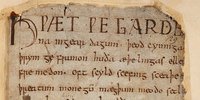 HǷÆT ǷE GARDE
na ingear dagum þeod cyninga
þrym ge frunon huda æþelingas elle
fremedon oft scyld scefing sceaþe
þreatum monegū mægþum meodo setla